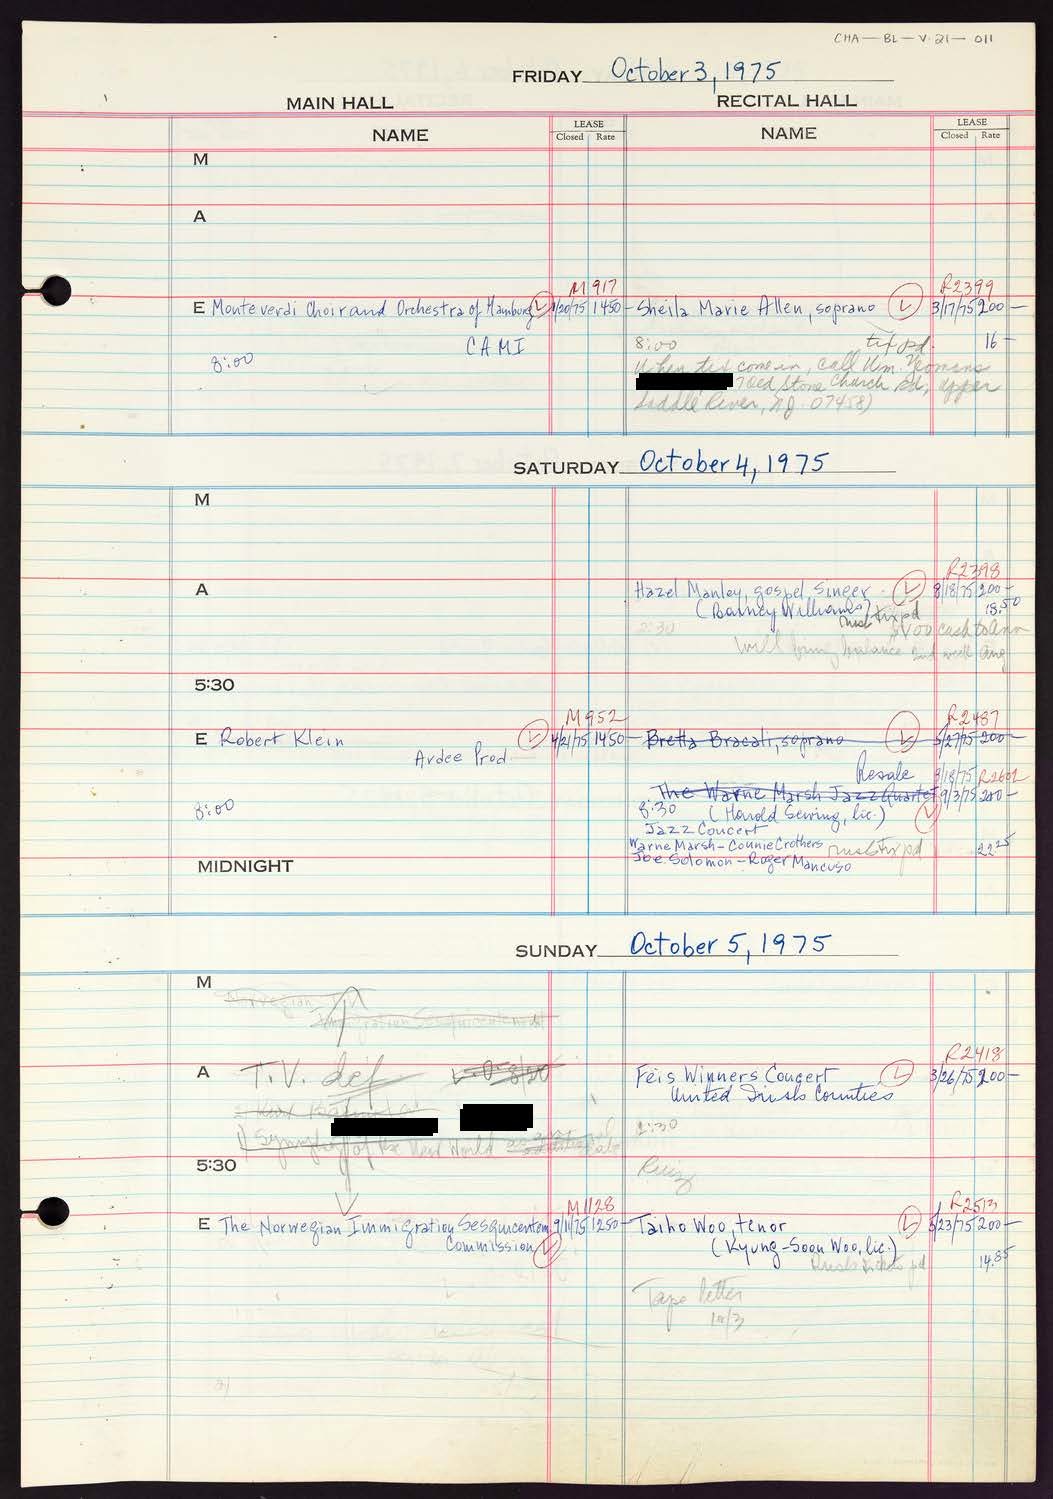 CHA-BL-V.21-011
FRIDAY October 3, 1975
MAIN HALL RECITAL HALL
NAME LEASE Closed Rate NAME LEASE Closed Rate
M
A
M917 R2399
E Monteverdi Choir and Orchestra of Hamburg 1450- Sheila Marie Allen, soprano 3/17/75 200-
CAMI 8:00 tix pd. 16-
8:00 When tix come in, call Wm. Yeomans
Old Stone Church Rd, Upper
Saddle River, NJ. 07458)
SATURDAY October 4, 1975
M
R2398
A Hazel Manley, gospel singer 8/18/75 200-
(Barney Williams) rush tix pd 18.50
2:30 cash to Ann
will bring balance 2nd week Aug
5:30
M952 R2487
E Robert Klein 4/21/75 1450- Bretta Bracali, soprano 5/27/75 200-
Ardee Prod
Resale 9/18/75 R2602
The Warne Marsh Jazz Quartet 9/3/75 200-
8:00 8:30 (Harold Sewing, lic.)
Jazz Concert
Warne Marsh - Connie Crothers rush tix pd 22.25
Joe Solomon - Roger Mancuso
MIDNIGHT
SUNDAY October 5, 1975
M
Norwegian
Immigration Sesquicentennial
R2418
A T.V. def Feis Winners Concert 3/26/75 200-
United Irish Counties
Symphony of the New World 2:30
5:30 Ruiz
M1128 R2513
E The Norwegian Immigration Sesquicentem. 9/11/75 1250- Taiho Woo, tenor 5/23/75 200-
Commission (Kyung-Soon Woo, lic.)
Rush tickets pd 14.85
Tape letter
10/3